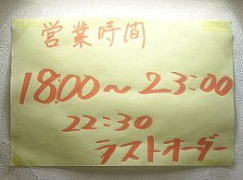 営業時間
18:00～23:00
22:30
ラストオーダー